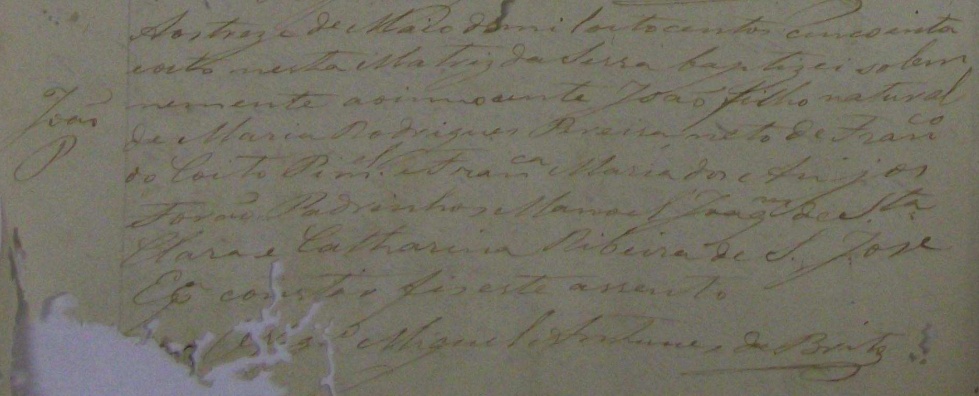 Aos treze de Maio de mil oitocentos cincoenta
e oito nesta Matriz da Serra baptizei solem
nemente ao innocente João filho natural
João
P
de Maria Rodrigues Pereira, neto de Franco
do Coito Pimtl e Franca Maria dos Anjos
Forão Padrinhos Manoel Joaqm de Sta
Clara e Catharina Ribeira de S. Jose
E p constar fis este assento
Miguel Antunes de Brito